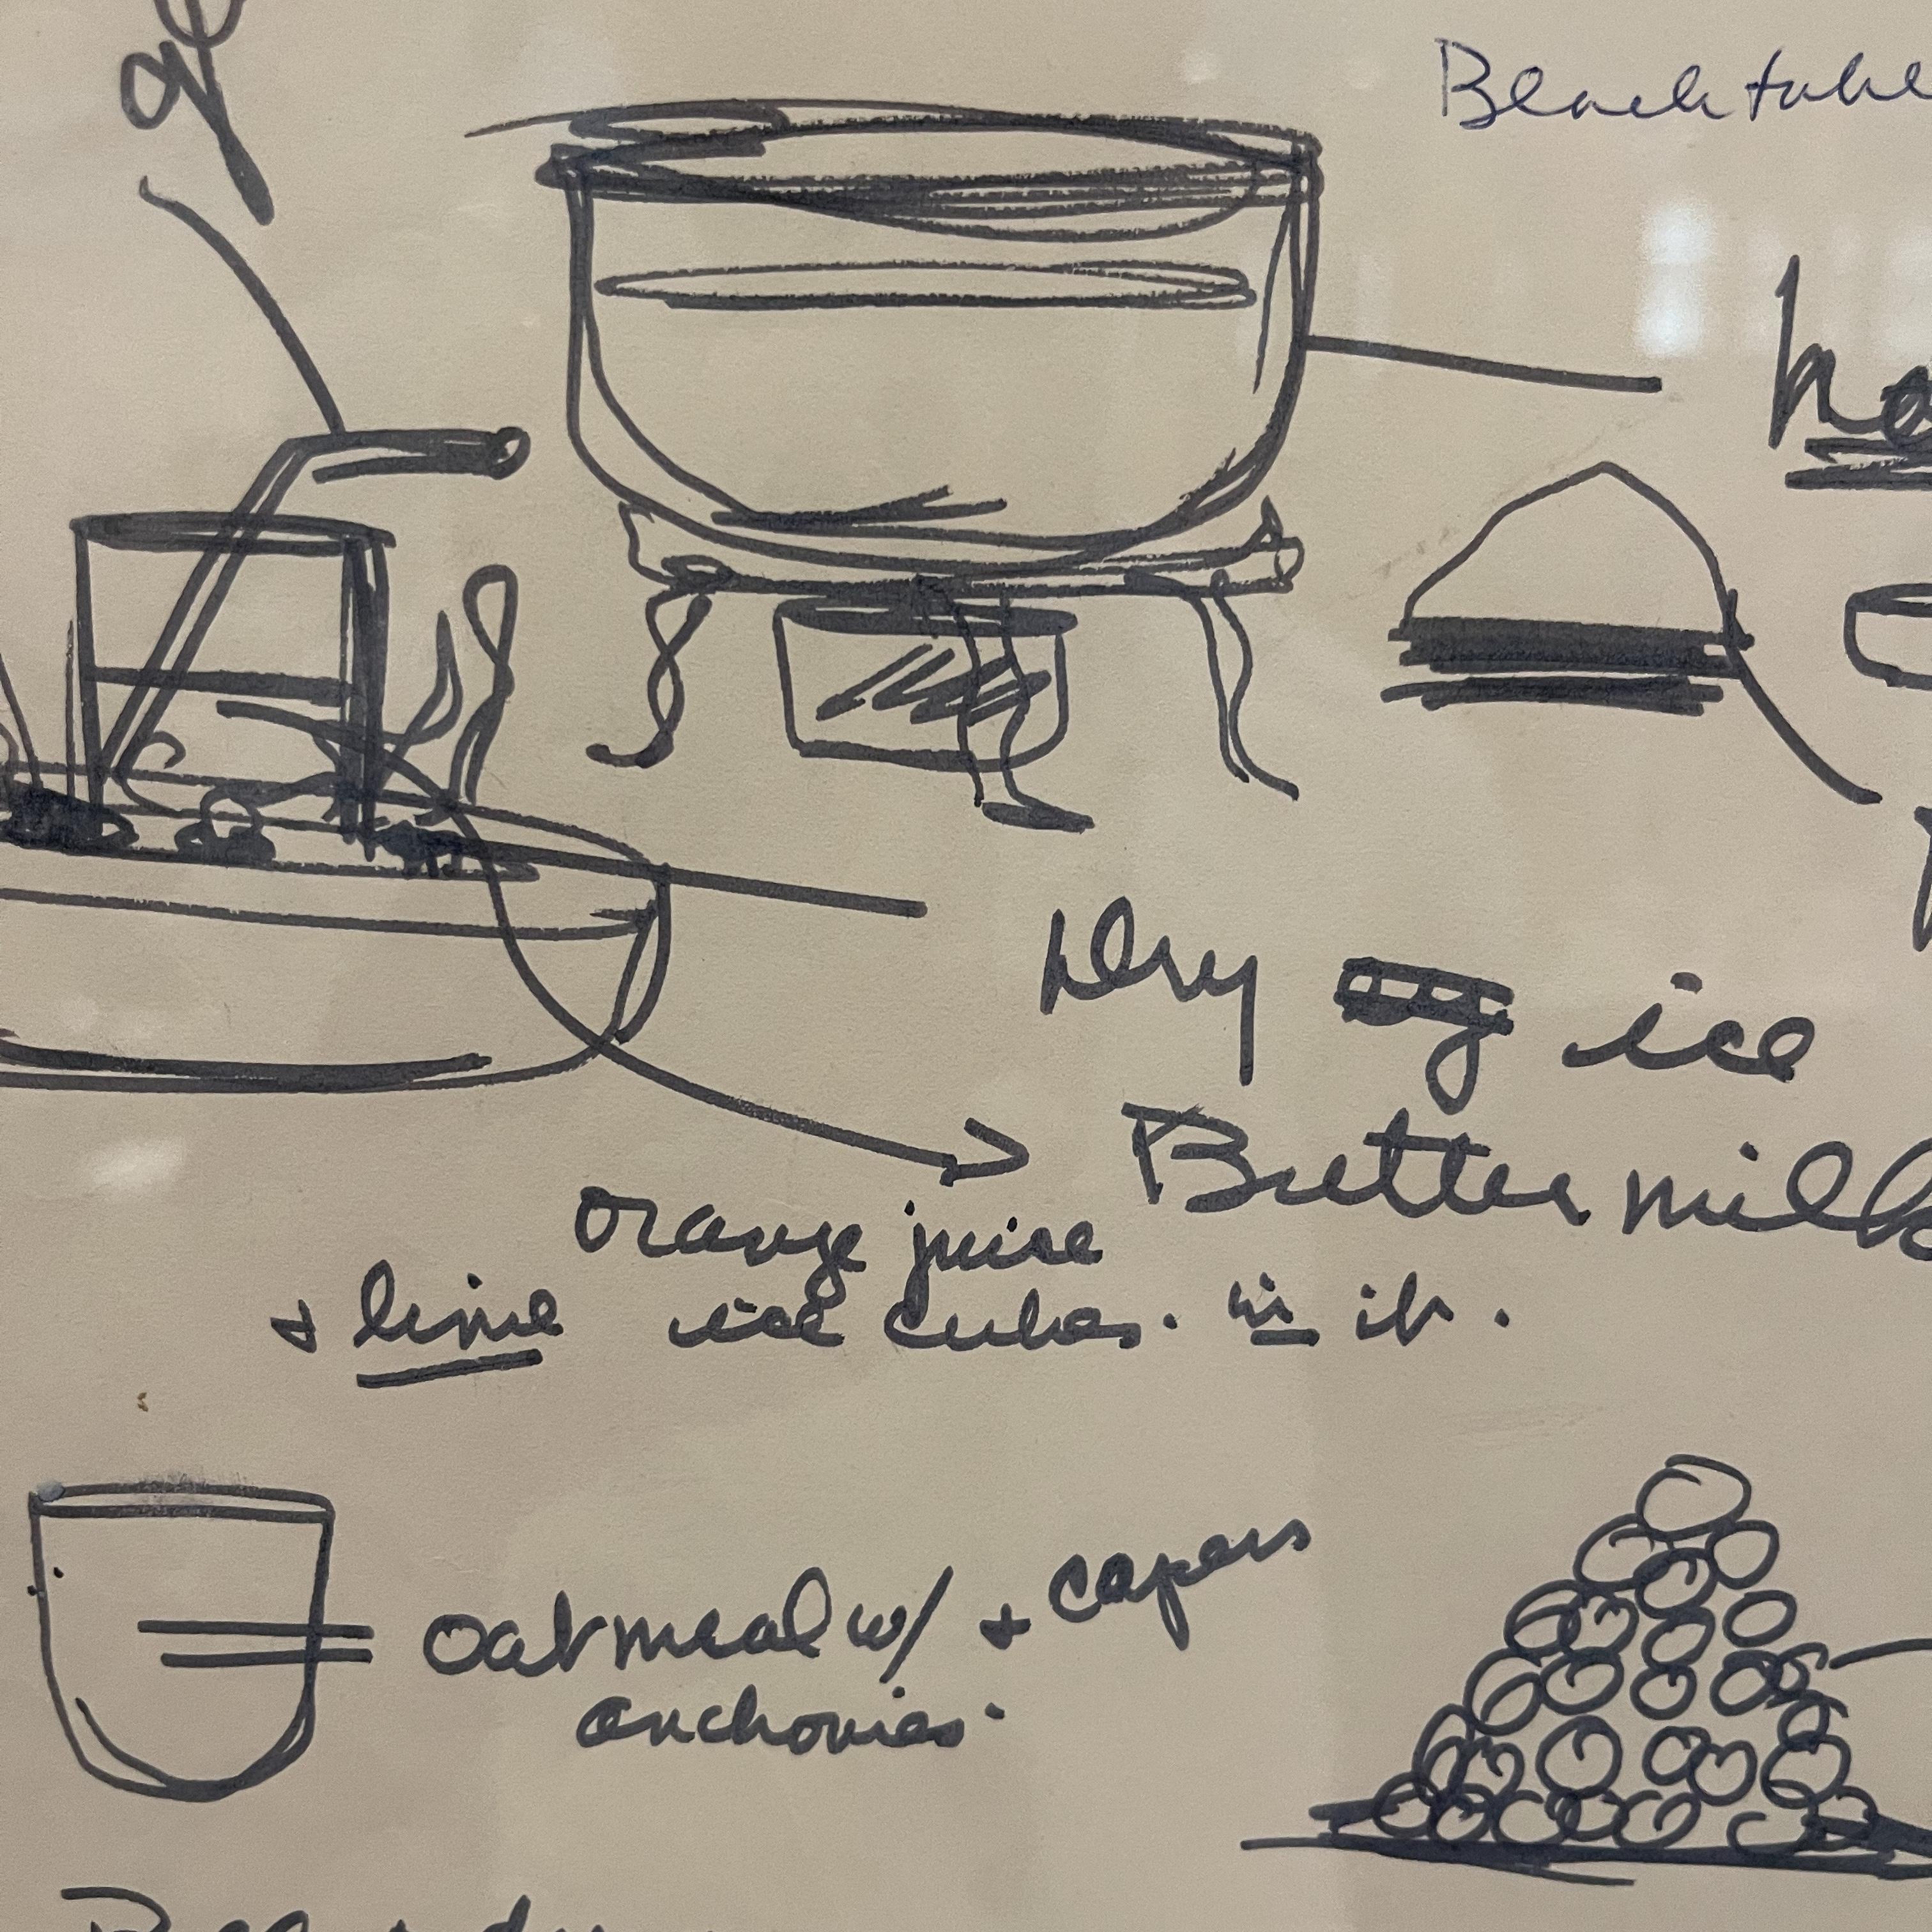 Dry ice
Buttermilk
orange juice
+ lime ice cubes. in it.
oatmeal w/ + capers
anchovies.